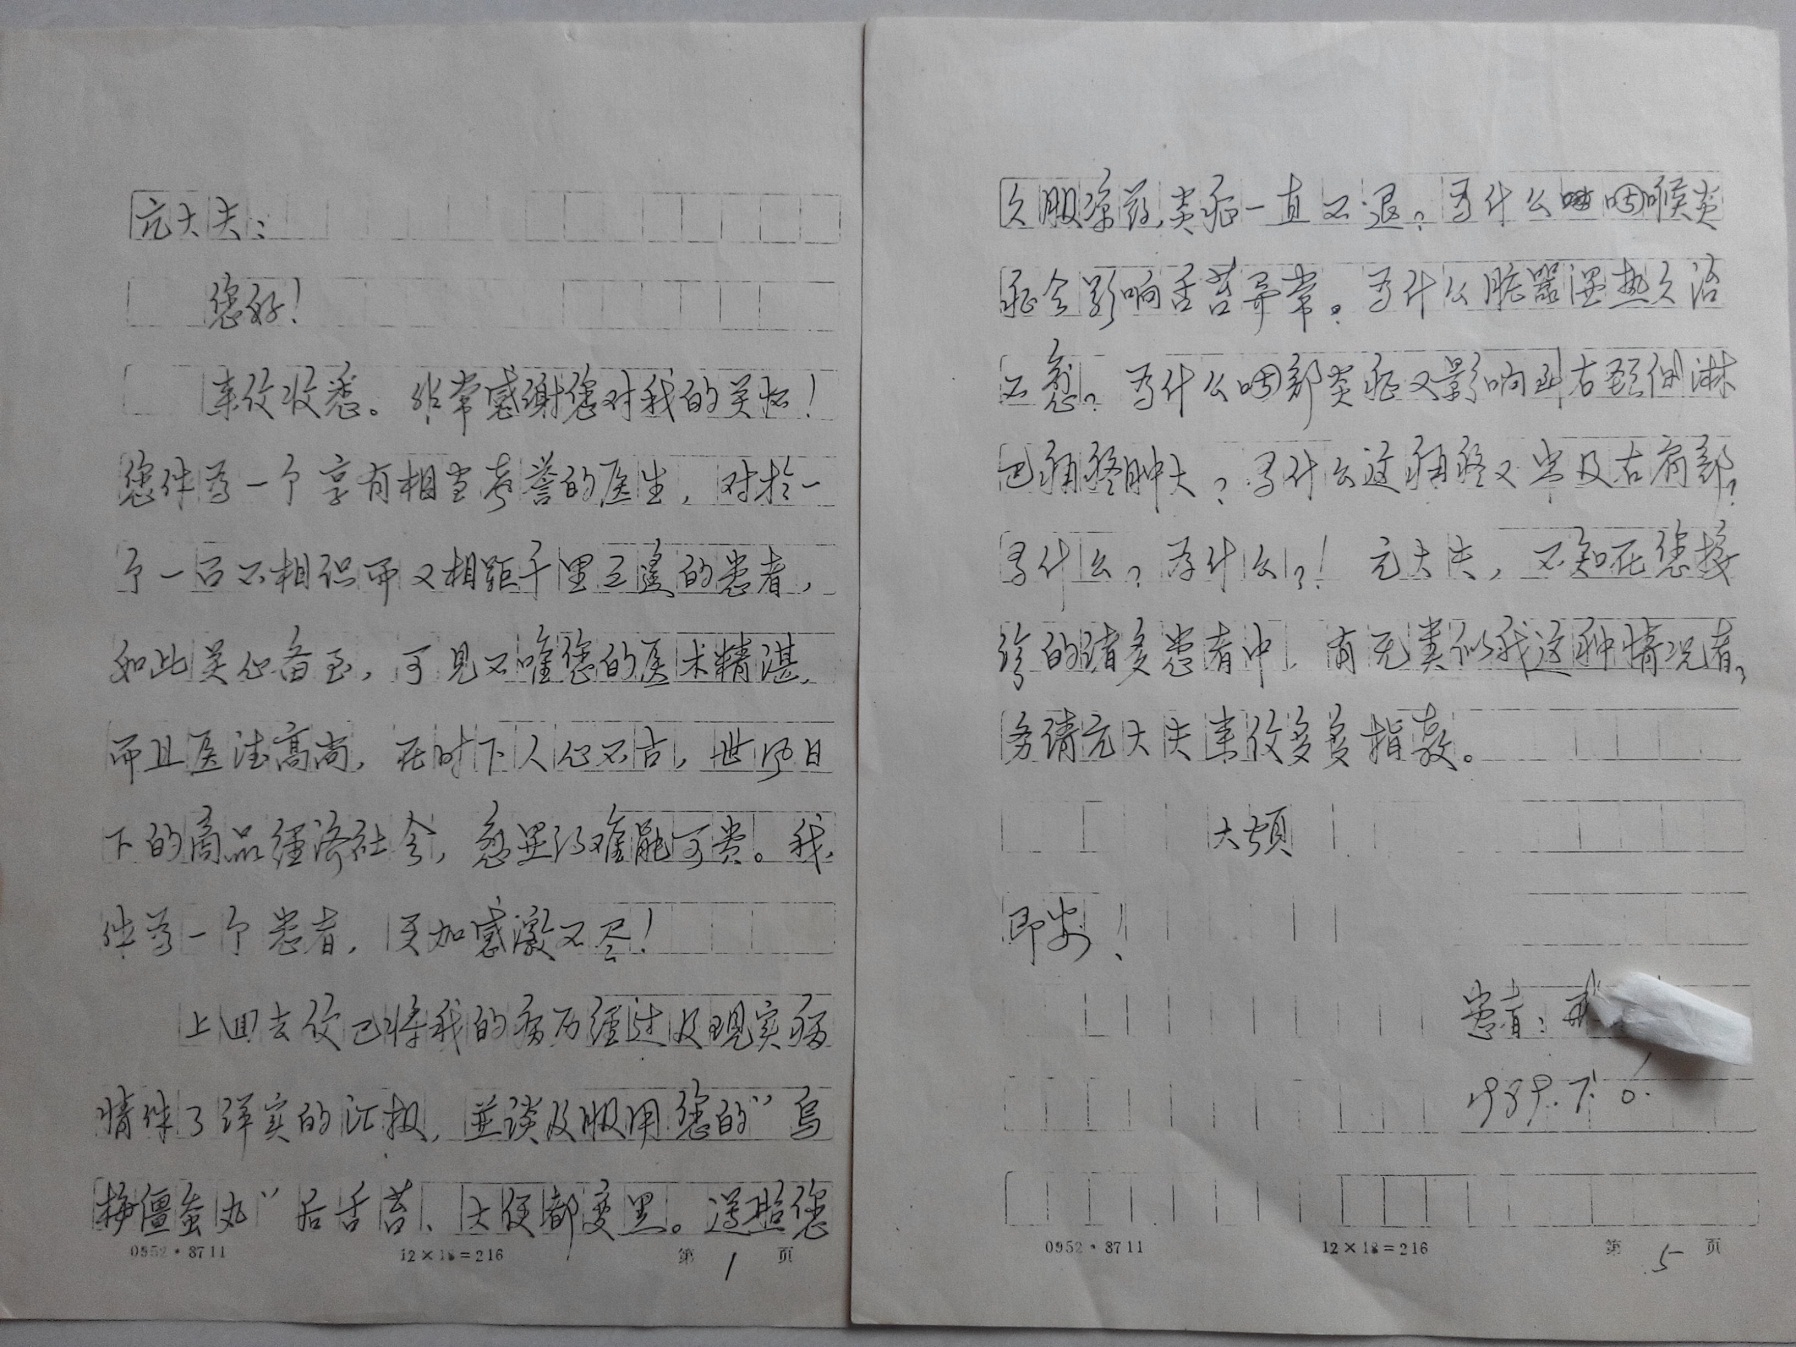 亓大夫：
您好！
来信收悉。非常感谢您对我的关怀！
您作为一个享有相当声誉的医生，对於一
个一面不相识而又相距千里之遥的患者，
如此关心备至，可见不唯您的医术精湛，
而且医德高尚，在时下人心不古，世风日
下的商品经济社会，愈显得难能可贵。我，
作为一个患者，更加感激不尽！
上回去信已将我的病历经过及现实病
情作了详实的汇报，並谈及服用您的“乌
梅僵蚕丸”后舌苔、大便都变黑。遵照您
0952·3711 12×18=216 第1页
久服凉药，炎症一直不退？为什么咽喉炎
症会影响舌苔异常。为什么脏器湿热久治
不愈？为什么咽部炎症又影响到右颈侧淋
巴腺肿大？为什么这又
为什么？为什么？！亓大夫，不知在您接
诊的诸多患者中，有无类似我这种情况者？
务请亓大夫来信多多指教。
大顿
即安！
患者：
1989.7.6.
0952·3711 12×18=216 第5页